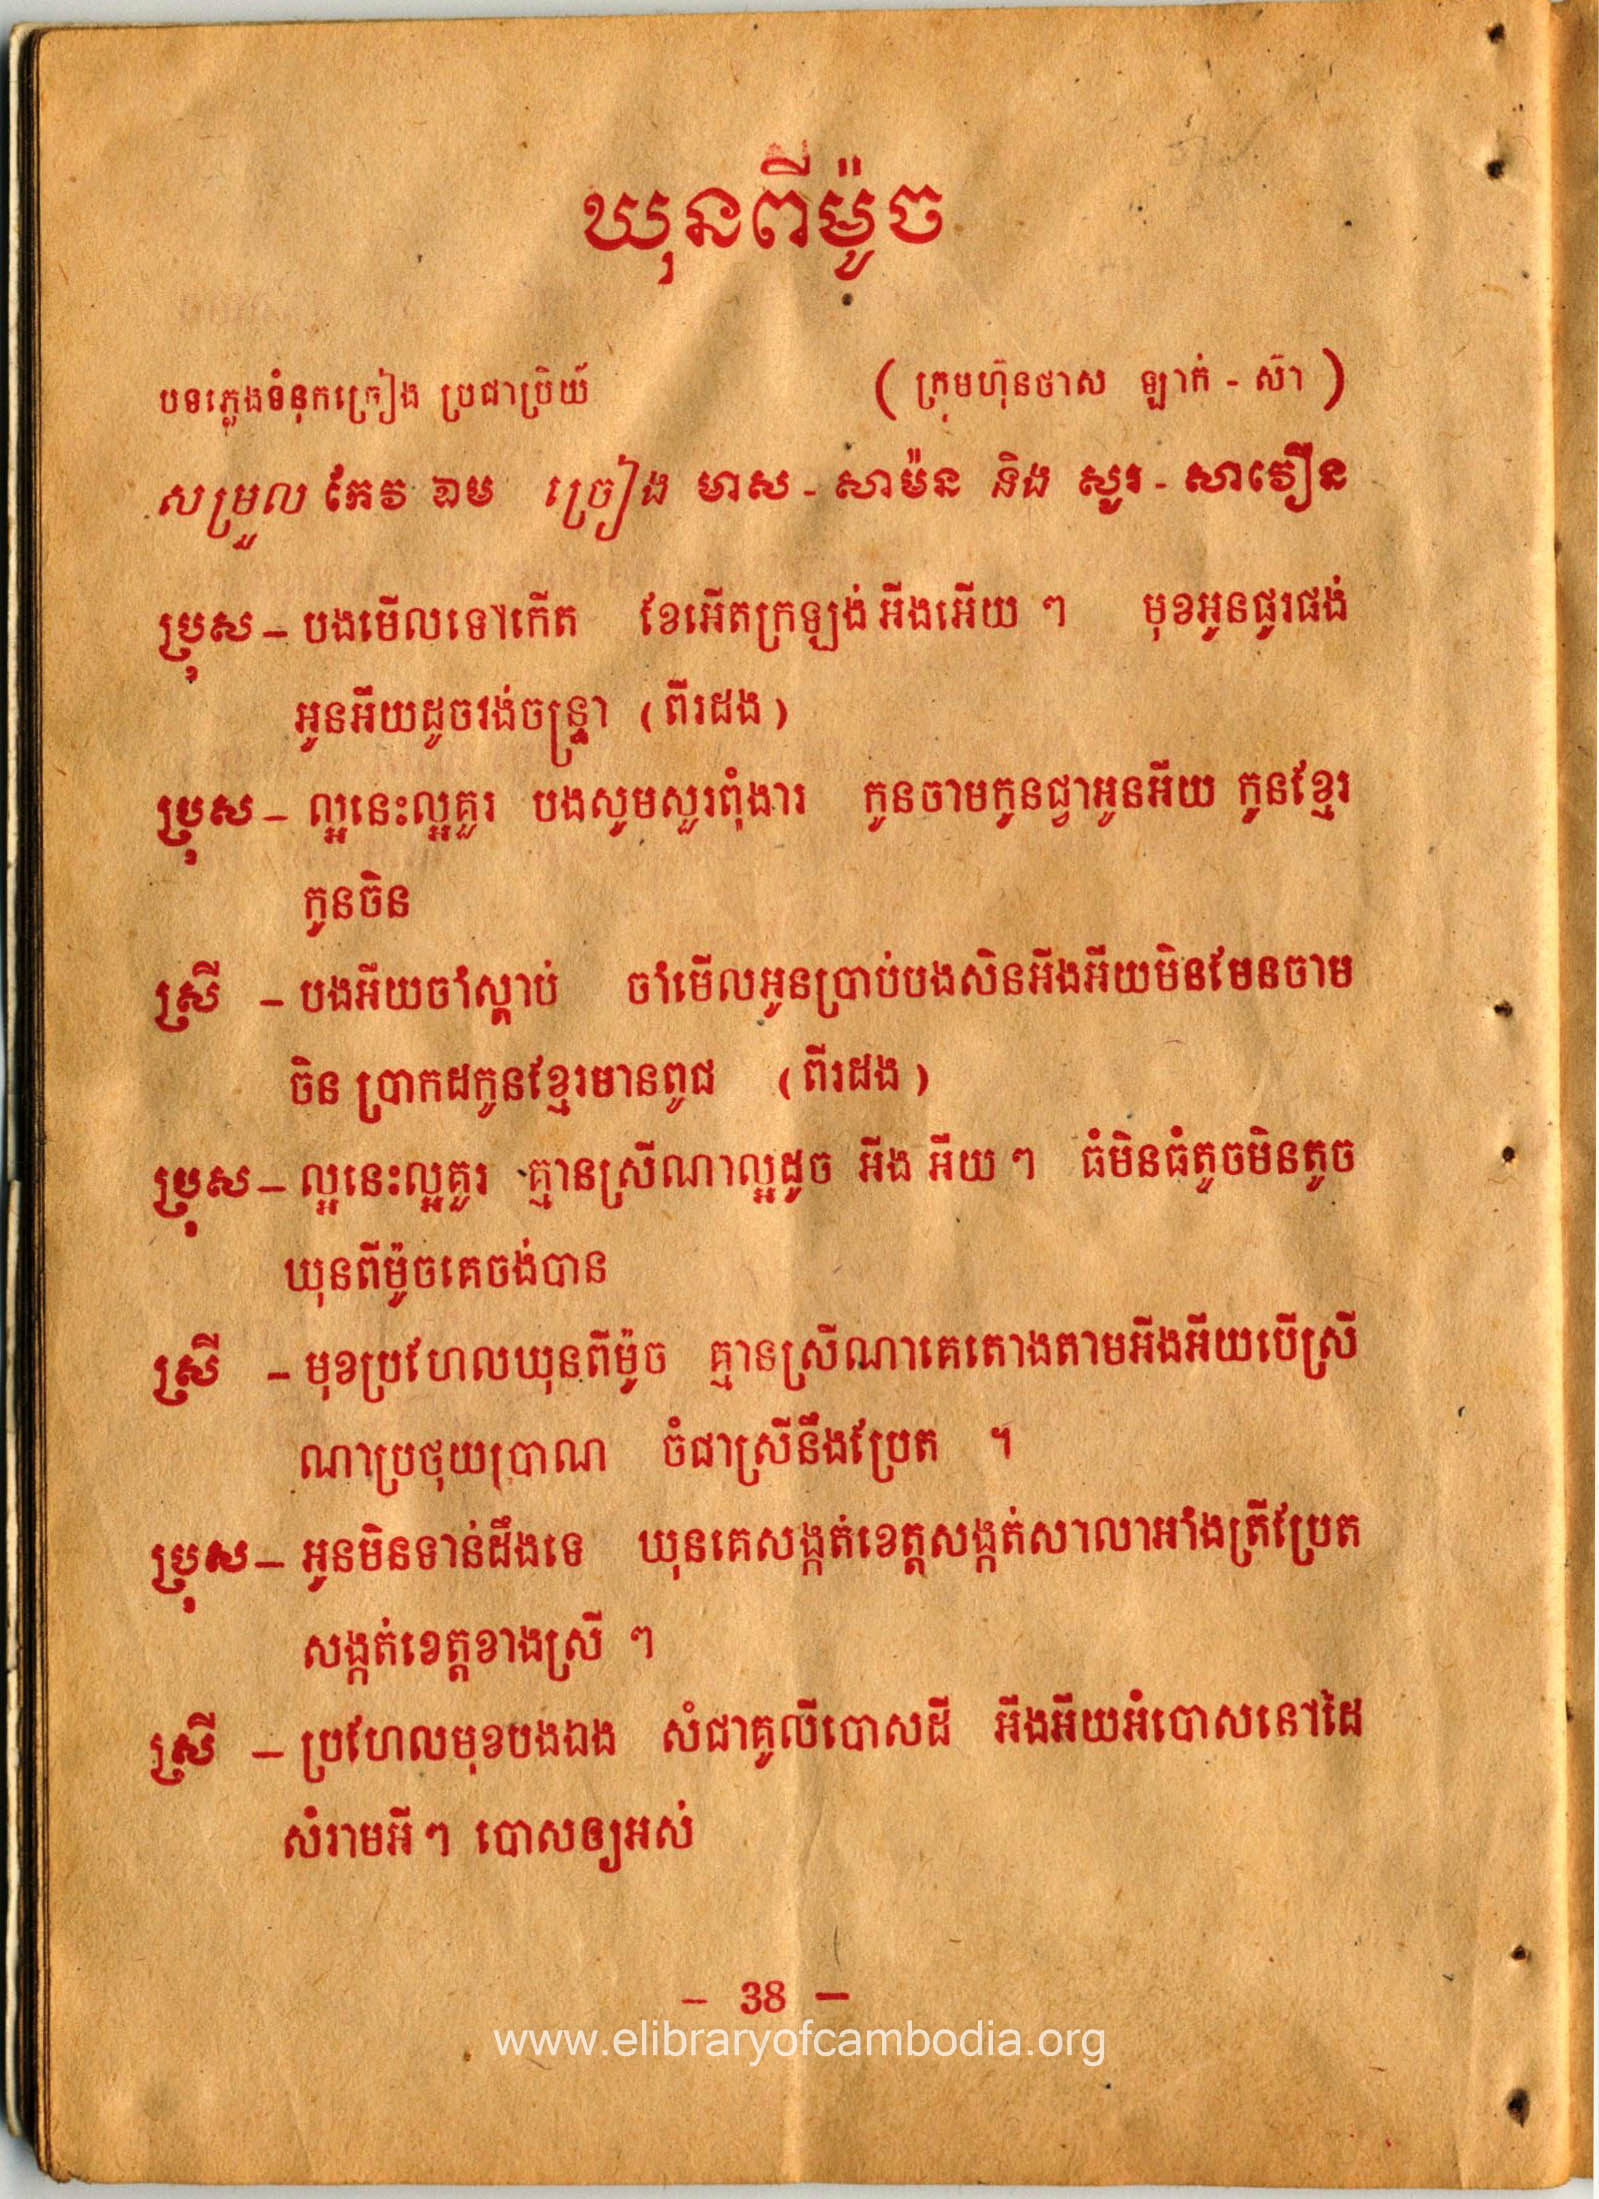 ឃុនពីម៉ូច
បទភ្លេងទំនុកច្រៀង ប្រជាប្រិយ៍ (ក្រុមហ៊ុនថាស ឡាក់ - ស៊ា)
សម្រួល កែវ ឯម ច្រៀង មាស - សាម៉ន និង សូរ - សាវឿន
ប្រុស – បងមើលទៅកើត ខែអើតក្រឡង់ អីងអើយ ៗ មុខអូនផូរផង់
អូនអីយដូចវង់ចន្ទ្រា (ពីរដង)
ប្រុស – ល្អនេះល្អគួរ បងសូមសួរពុំងារ កូនចាមកូនជ្វាអូនអីយ កូនខ្មែរ
កូនចិន
ស្រី – បងអីយចាំស្តាប់ ចាំមើលអូនប្រាប់បងសិនអីងអីយមិនមែនចាម
ចិន ប្រាកដកូនខ្មែរមានពូជ (ពីរដង)
ប្រុស – ល្អនេះល្អគួរ គ្មានស្រីណាល្អដូច អីង អីយ ៗ ធំមិនធំតូចមិនតូច
ឃុនពីម៉ូចគេចង់បាន
ស្រី – មុខប្រហែលឃុនពីម៉ូច គ្មានស្រីណាគេតោងតាមអីងអីយបើស្រី
ណាប្រថុយប្រាណ ចំជាស្រីនឹងប្រែត ។
ប្រុស – អូនមិនទាន់ដឹងទេ ឃុនគេសង្កត់ខេត្តសង្កត់សាលាអាំងត្រីប្រែត
សង្កត់ខេត្តខាងស្រី ៗ
ស្រី – ប្រហែលមុខបងឯង សំជាគូលីបោសដី អីងអីយអំបោសនៅដៃ
សំរាមអី ៗ បោសឲ្យអស់
– 38 –
www.elibraryofcambodia.org